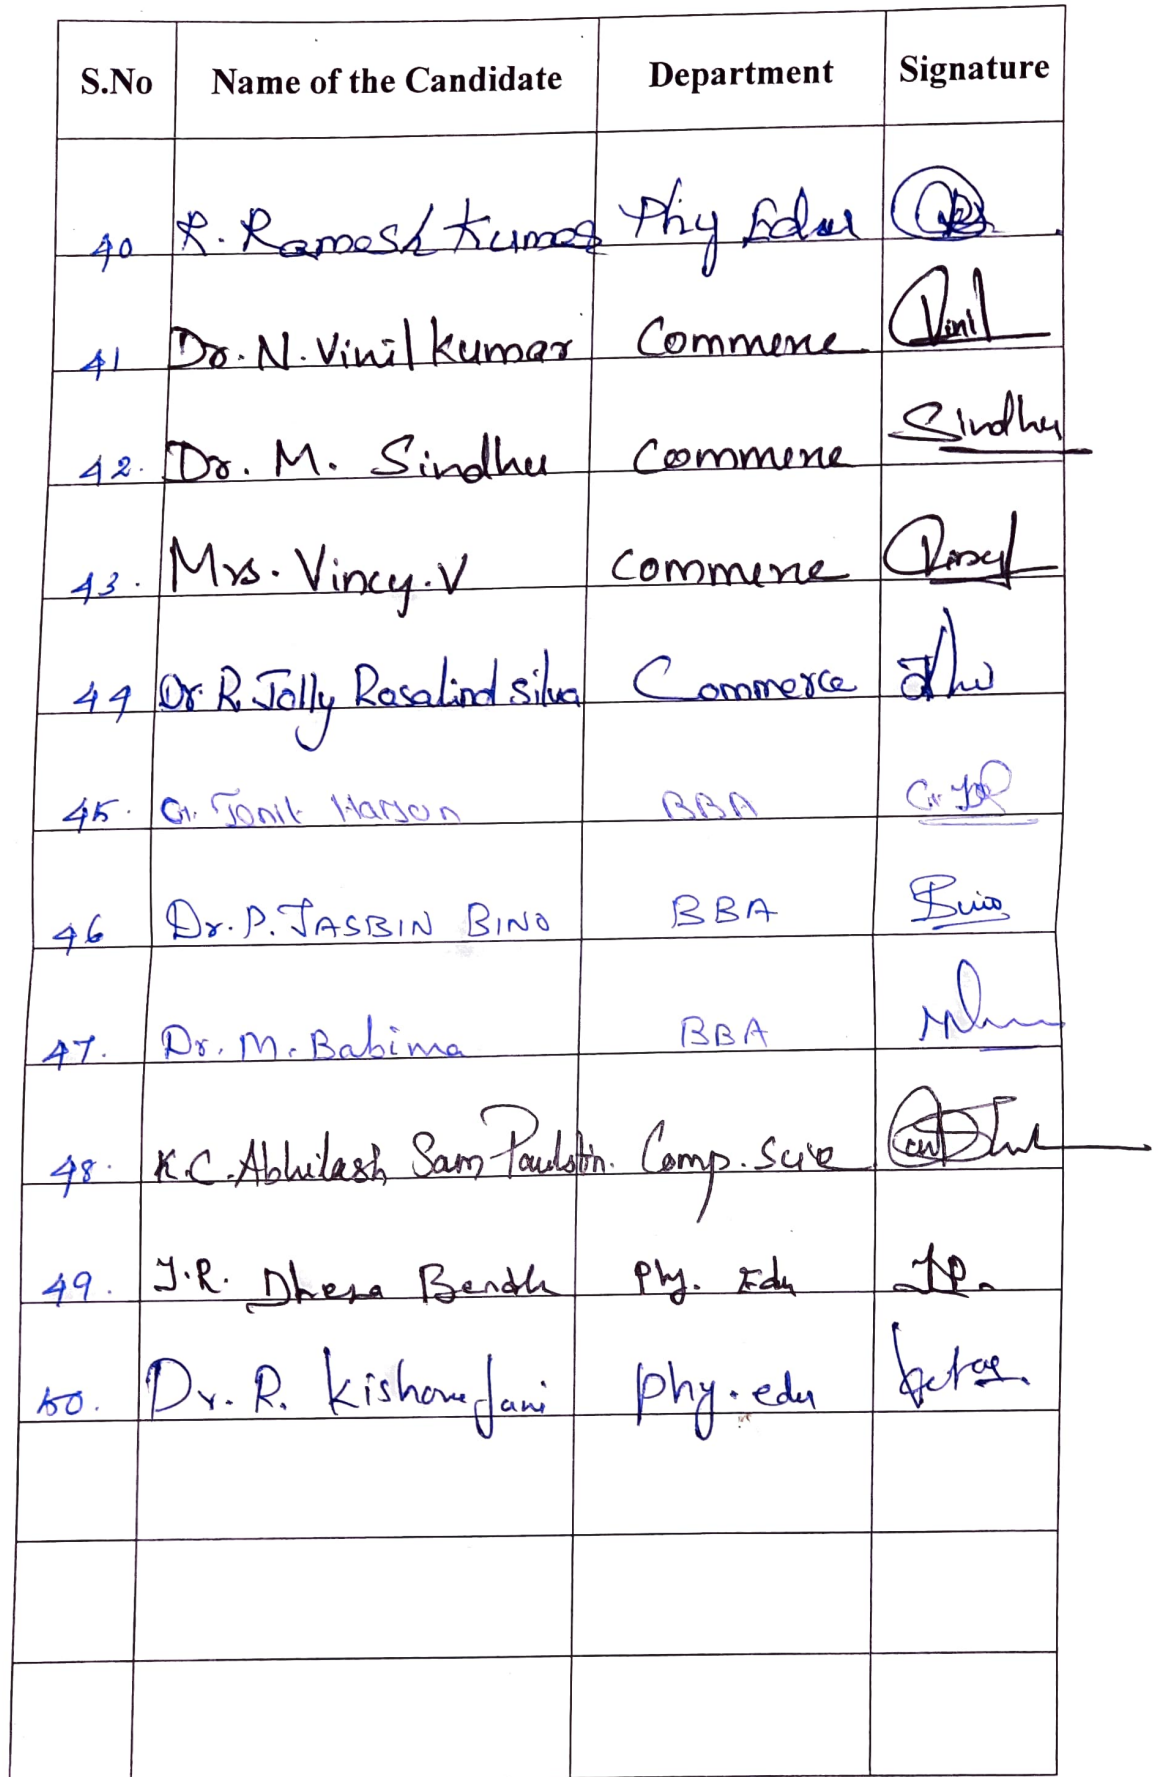 S.No Name of the Candidate Department Signature
40 R. Ramesh Kumar Phy Edu
41 Dr. N. Vinil kumar Commerce Vinil
42. Dr. M. Sindhu Commerce Sindhu
43. Mrs. Vincy. V Commerce
44 Dr. R. Jolly Rosalind silva Commerce
45. G. BBA
46 Dr. P. JASBIN BINO BBA Bino
47. Dr. M. Babima BBA
48. K.C. Abhilash Sam Paulstin. Comp. Scie
49. J.R. Phy. Edu
50. Dr. R. Kishore Jani Phy. edu